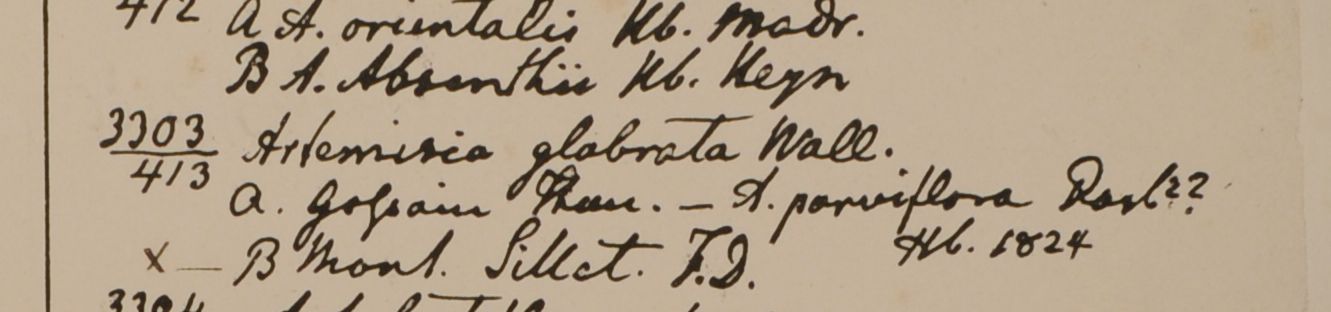 412 a A. orientalis Hb. Madr.
B A. Absinthii Hb. Heyn
3303 Artemisia glabrata Wall.
413
a. Gossain Than. – A. parviflora Roxb??
Hb. 1824
x — B Mont. Sillet. F.D.
3304